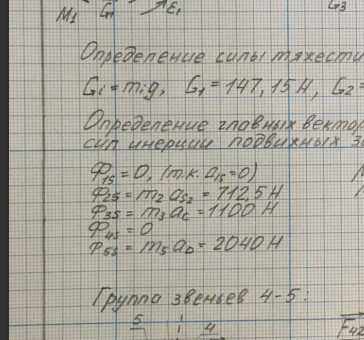 M₁ G₁ ε₁ G₃
Определение силы тяжести
Gi = mig, G₁ = 147,15 Н, G₂ =
Определение главных вектор
сил инерции подвижных зв
Ф₁s = 0, (т.к. a₁s = 0)
Ф₂s = m₂ as₂ = 712,5 Н
Ф₃s = m₃ ac = 1100 Н
Ф₄s = 0
Ф₅s = m₅ aD = 2040 Н
Группа звеньев 4-5:
5 4 F₄₂